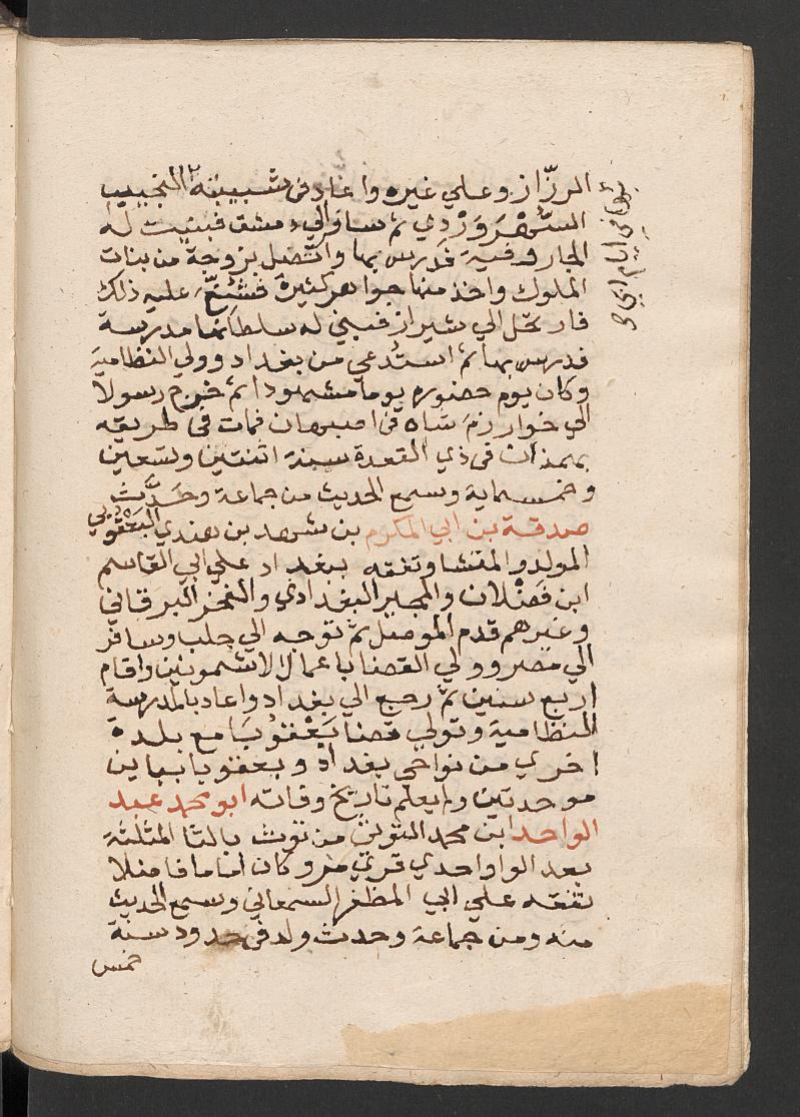 الرزّاز وعلي غيره واعاد في شبيبته ١٢ النجيب
السُّهْرَوَرْدي ثم سافر الي دمشق فبنيت له
الجاروخية فدرس بها واتّصل بزوجة من بنات
الملوك واخذ منها جواهر كثيرة فشُنّع عليه ذلك
فارتحل الي شيراز فبني له سلطانها مدرسة
فدرس بها ثم استُدعي من بغداد وولي النظامية
وكان يوم حضوره يوما مشهودا ثم خرج رسولا
الي خوارزم شاه في اصبهان فمات في طريقه
بهمذان في ذي القعدة سنة اثنتين وتسعين
وخمسماية وسمع الحديث من جماعة وحَدَّث
صدقة بن ابي المكروم بن شهد بن هندي البَعْقوبي
المولد والمنشا وتفقه ببغداد علي ابي القاسم
ابن فَضْلان والمجير البغدادي والفخر البرقاني
وغيرهم قدم الموصل ثم توجه الي حلب وسافر
الي مصر وولي القضا باعمال الاشمونين واقام
اربع سنين ثم رجع الي بغداد واعاد بالمدرسة
النظامية وتولي قضا يَعْقوُبَا مع بلدة
اخري من نواحي بغداد وبعقوبا بباين
موحدتين ولم يعلم تاريخ وفاته ابو محمد عبد
الواحد ابن محمد التوثي من توث بالثا المثلثة
بعد الواو احدي قري مرو وكان اماما فاضلا
تفقه علي ابي المظفر السمعاني وسمع الحديث
منه ومن جماعة وحدث ولد في حدود سنة
خمس